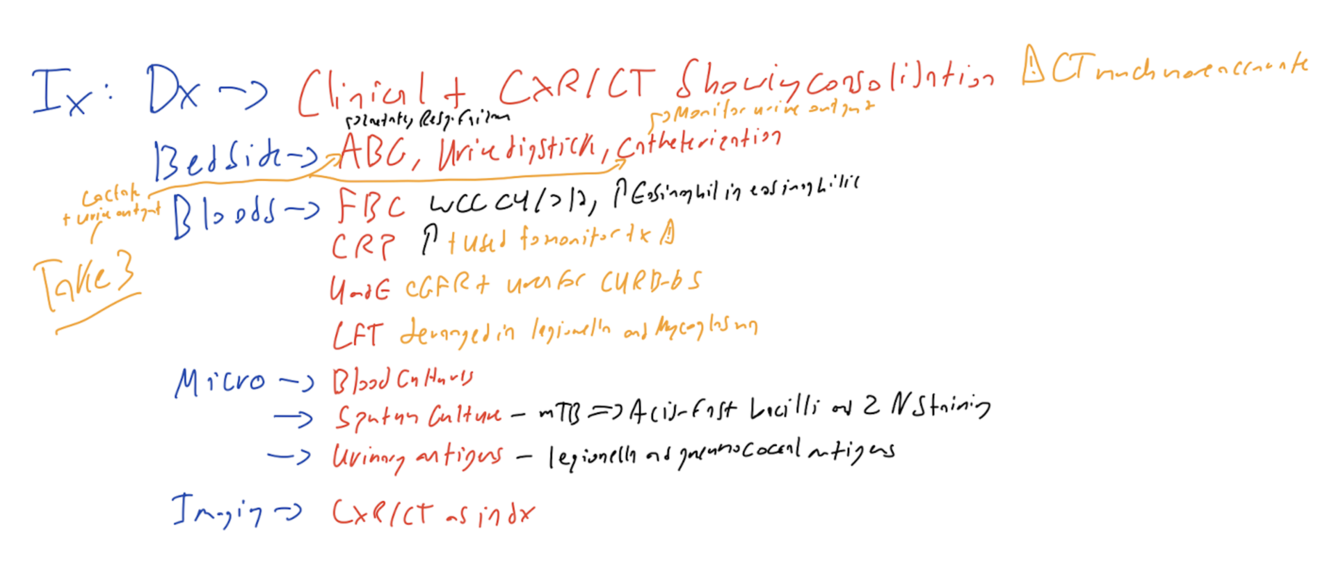 Ix: Dx -> Clinical + CXR/CT Showing consolidation ⚠ CT much more accurate
Resp. Failure
-> Monitor urine output
Bedside -> ABG, Urine dipstick, Catheterization
Lactate
+ Urine output
Take 3
Bloods -> FBC WCC ↑ Eosinophil in eosinophilic
CRP ↑ + used to monitor tx ⚠
U and E eGFR + urea for CURB-65
LFT deranged in legionella and Mycoplasma
Micro -> Blood Cultures
-> Sputum Culture - mTB => Acid-Fast bacilli and ZN Staining
-> Urinary antigens - legionella and pneumococcal antigens
Imaging -> CXR/CT as in dx